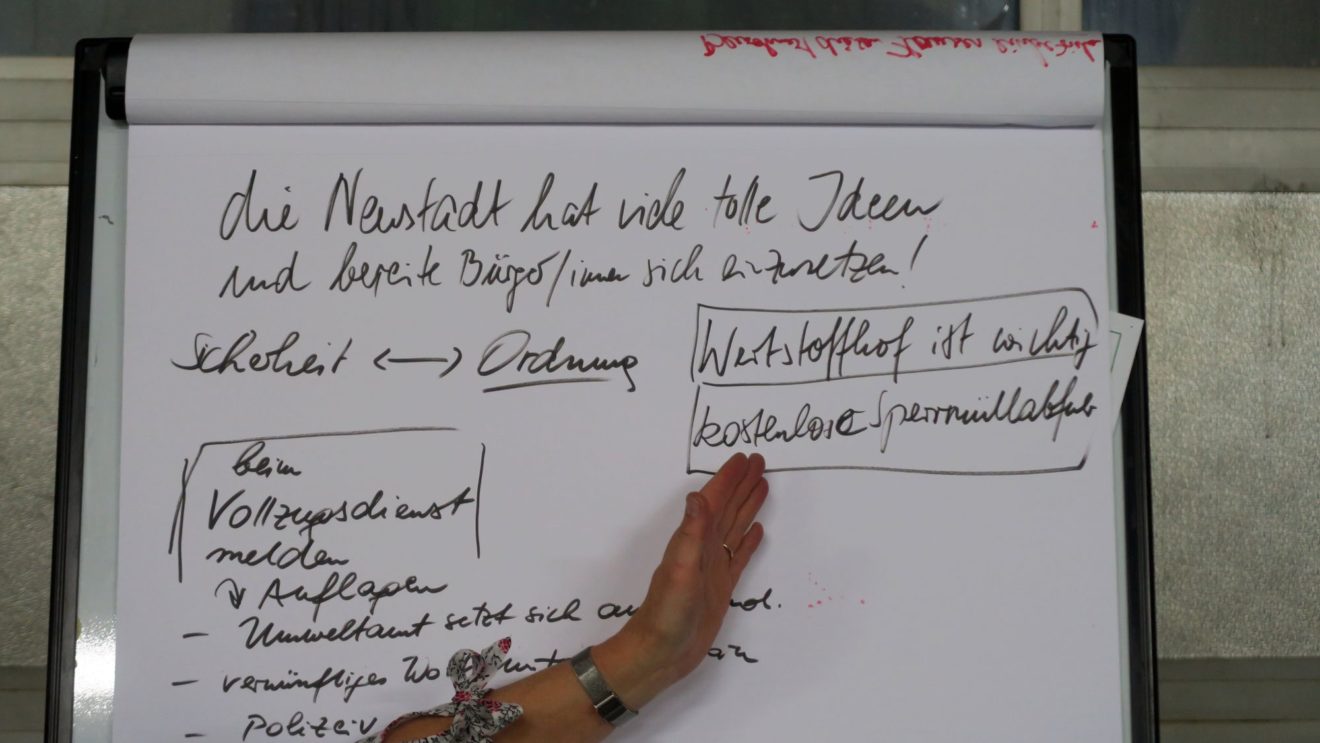 die Neustadt hat viele tolle Ideen
und bereite Bürger/innen sich einzusetzen!
Sicherheit <—> Ordnung
Wertstoffhof ist wichtig
kostenlose Sperrmüllabfuhr
beim
Vollzugsdienst
melden
↳ Auflagen
- Umweltamt setzt sich
- vernünftiges
- Polizei